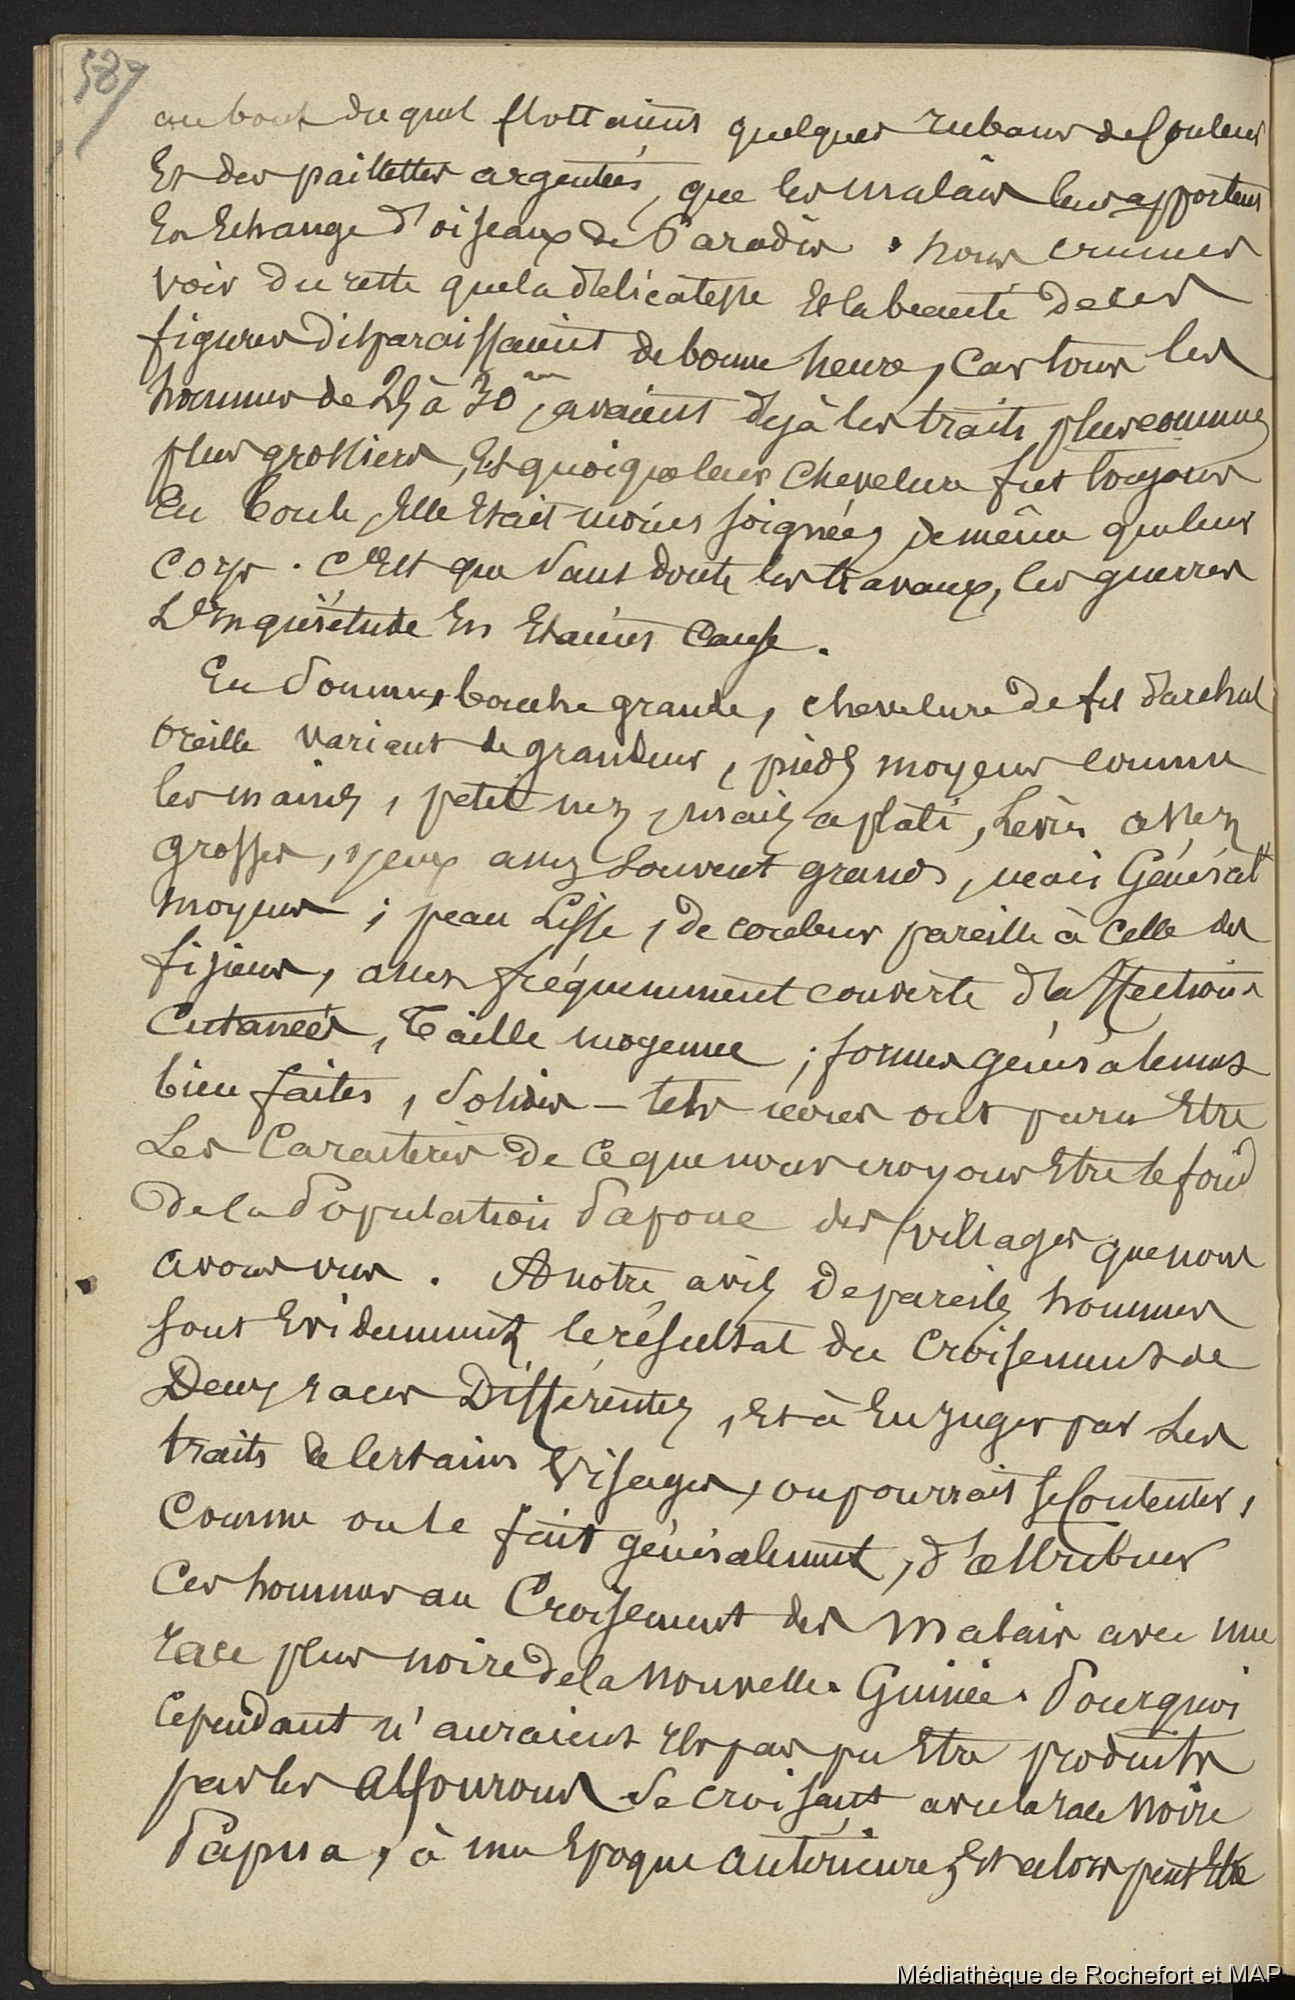 589
au bout duquel flottaient quelques rubans de Couleur
Et des paillettes argentées, que les malais leur apportent
En Echange d'oiseaux de Paradis. nous crumes
voir du reste que la délicatesse Et la beauté de ces
figures disparaissaient de bonne heure, car tous les
hommes de 25 à 30 ans, avaient déjà les traits plus communs
plus grossiers, Et quoique leur chevelure fut toujours
En boule, Elle Etait moins soignée, de même que leur
corps. C'Est que sans doute les travaux, les guerres
L'Inquiétude En Etaient Cause.
En Somme, bouche grande, chevelure de fil d'archal
oreille variant de grandeur, pieds moyens comme
les mains, petit nez, mais aplati, Lèvres assez
grosses, yeux assez Souvent grands, mais Général.t
moyens; peau Lisse, de couleur pareille à celle des
fijiens, assez fréquemment couverte d'affections
Cutanées, Taille moyenne; formes généralement
bien faites, Solides – tels nous ont paru Etre
Les Caractères de ce que nous croyons Etre le fond
de la Population Papoue des villages que nous
avons vus. A notre avis de pareils hommes
sont Evidemment le résultat du Croisement de
Deux races Différentes, Et à En juger par Les
traits de Certains Visages, on pourrait se Contenter,
Comme on le fait généralement, d'attribuer
Ces hommes au Croisement des Malais avec une
race plus noire de la Nouvelle-Guinée. Pourquoi
Cependant n'auraient Ils pas pu Etre produits
par les Alfourous se croisant avec la race Noire
Papua, à une Epoque antérieure, Et alors peut Etre
Médiathèque de Rochefort et MAP